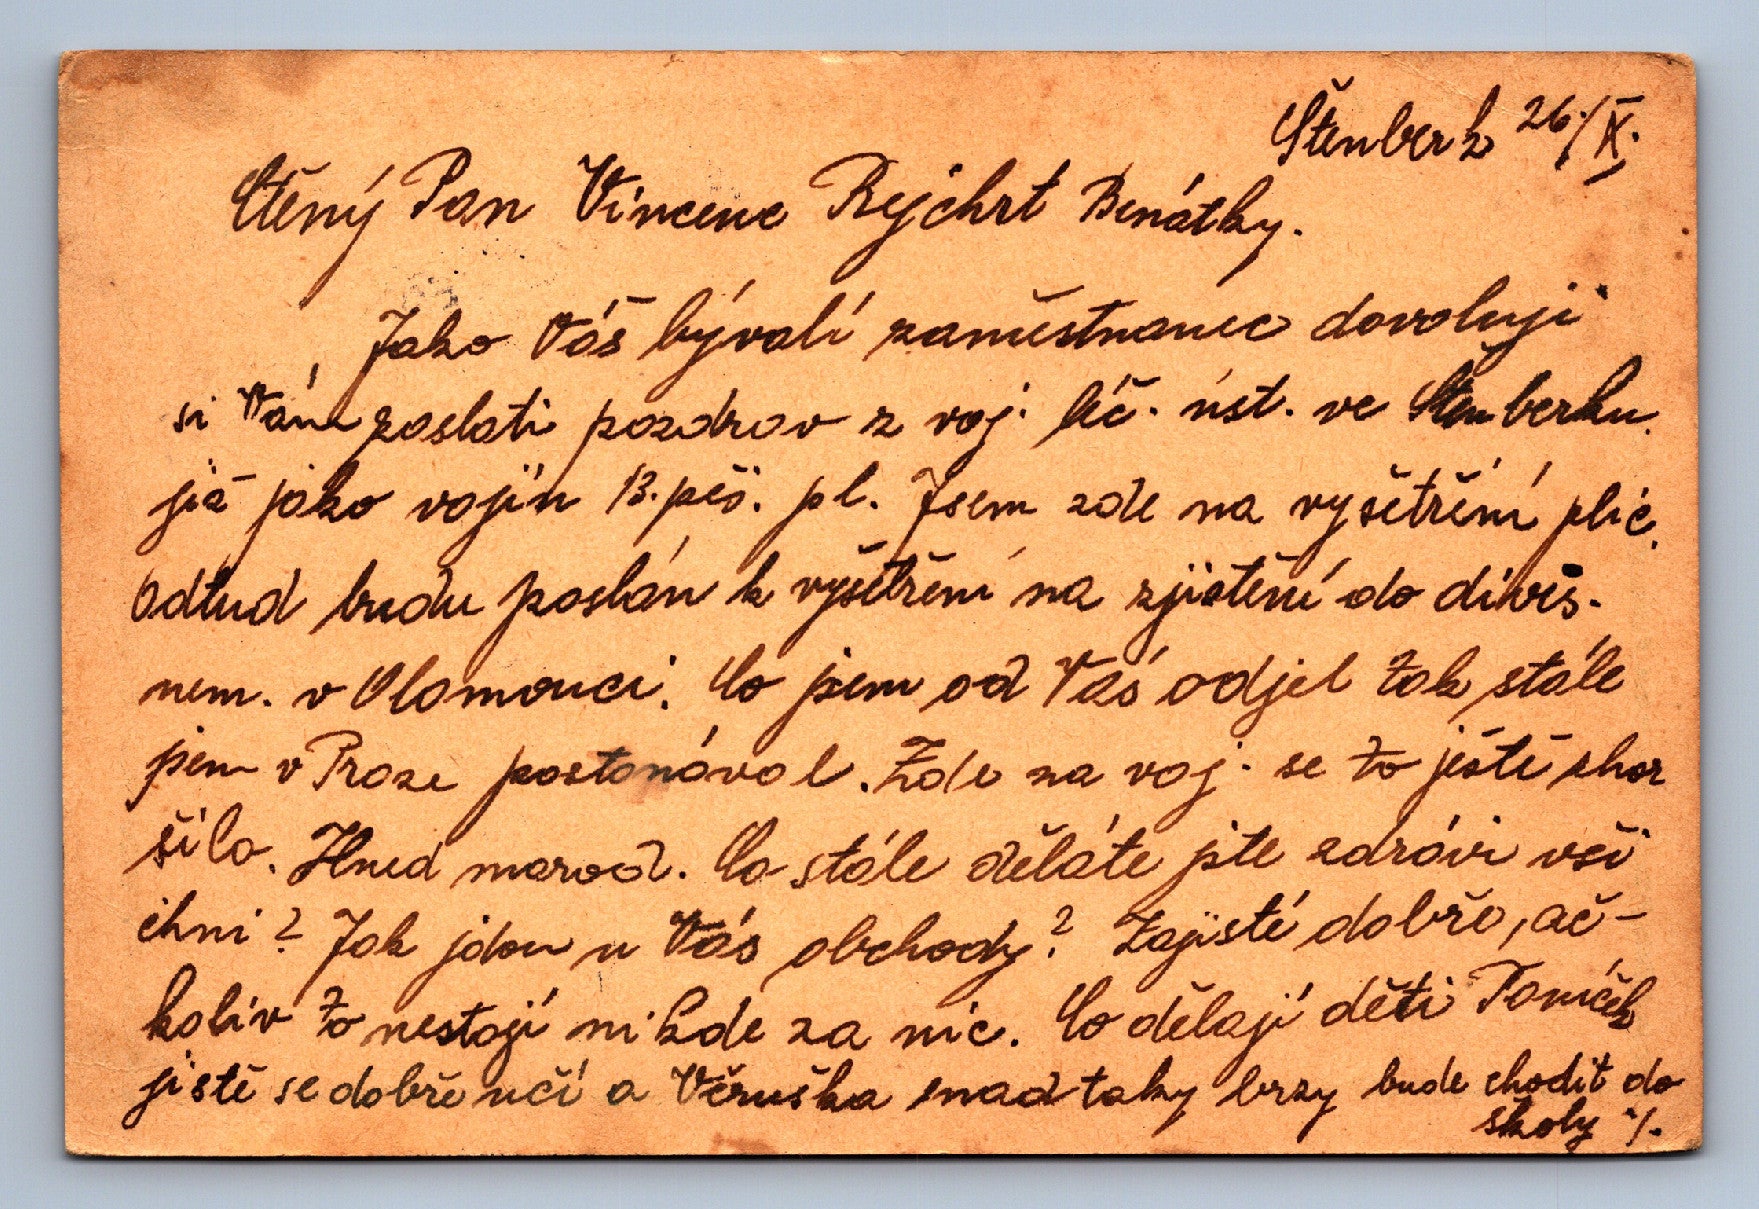 Štenberk 26./X.
Ctěný Pan Vincenc Rejchrt Benátky.
Jako Váš bývalí zaměstnanec dovoluji
si Vám poslati pozdrav z voj. léč. úst. ve Štenberku.
již jako vojín 13. peš. pl. Jsem zde na vyšetření plic.
Odtud budu poslán k vyšetření na zjištění do divis.
nem. v Olomouci. Co jsem od Vás odjel tak stále
jsem v Praze postonával. Zde na voj. se to ještě zhor
šilo. Hned marod. Co stále děláte jste zdrávi vši
chni? Jak jdou u Vás obchody? Zajisté dobře, ač-
koliv to nestojí nikde za nic. Co dělají děti Paníček
jistě se dobře učí a Věruška snad taky brzy bude chodit do
školy ·/.